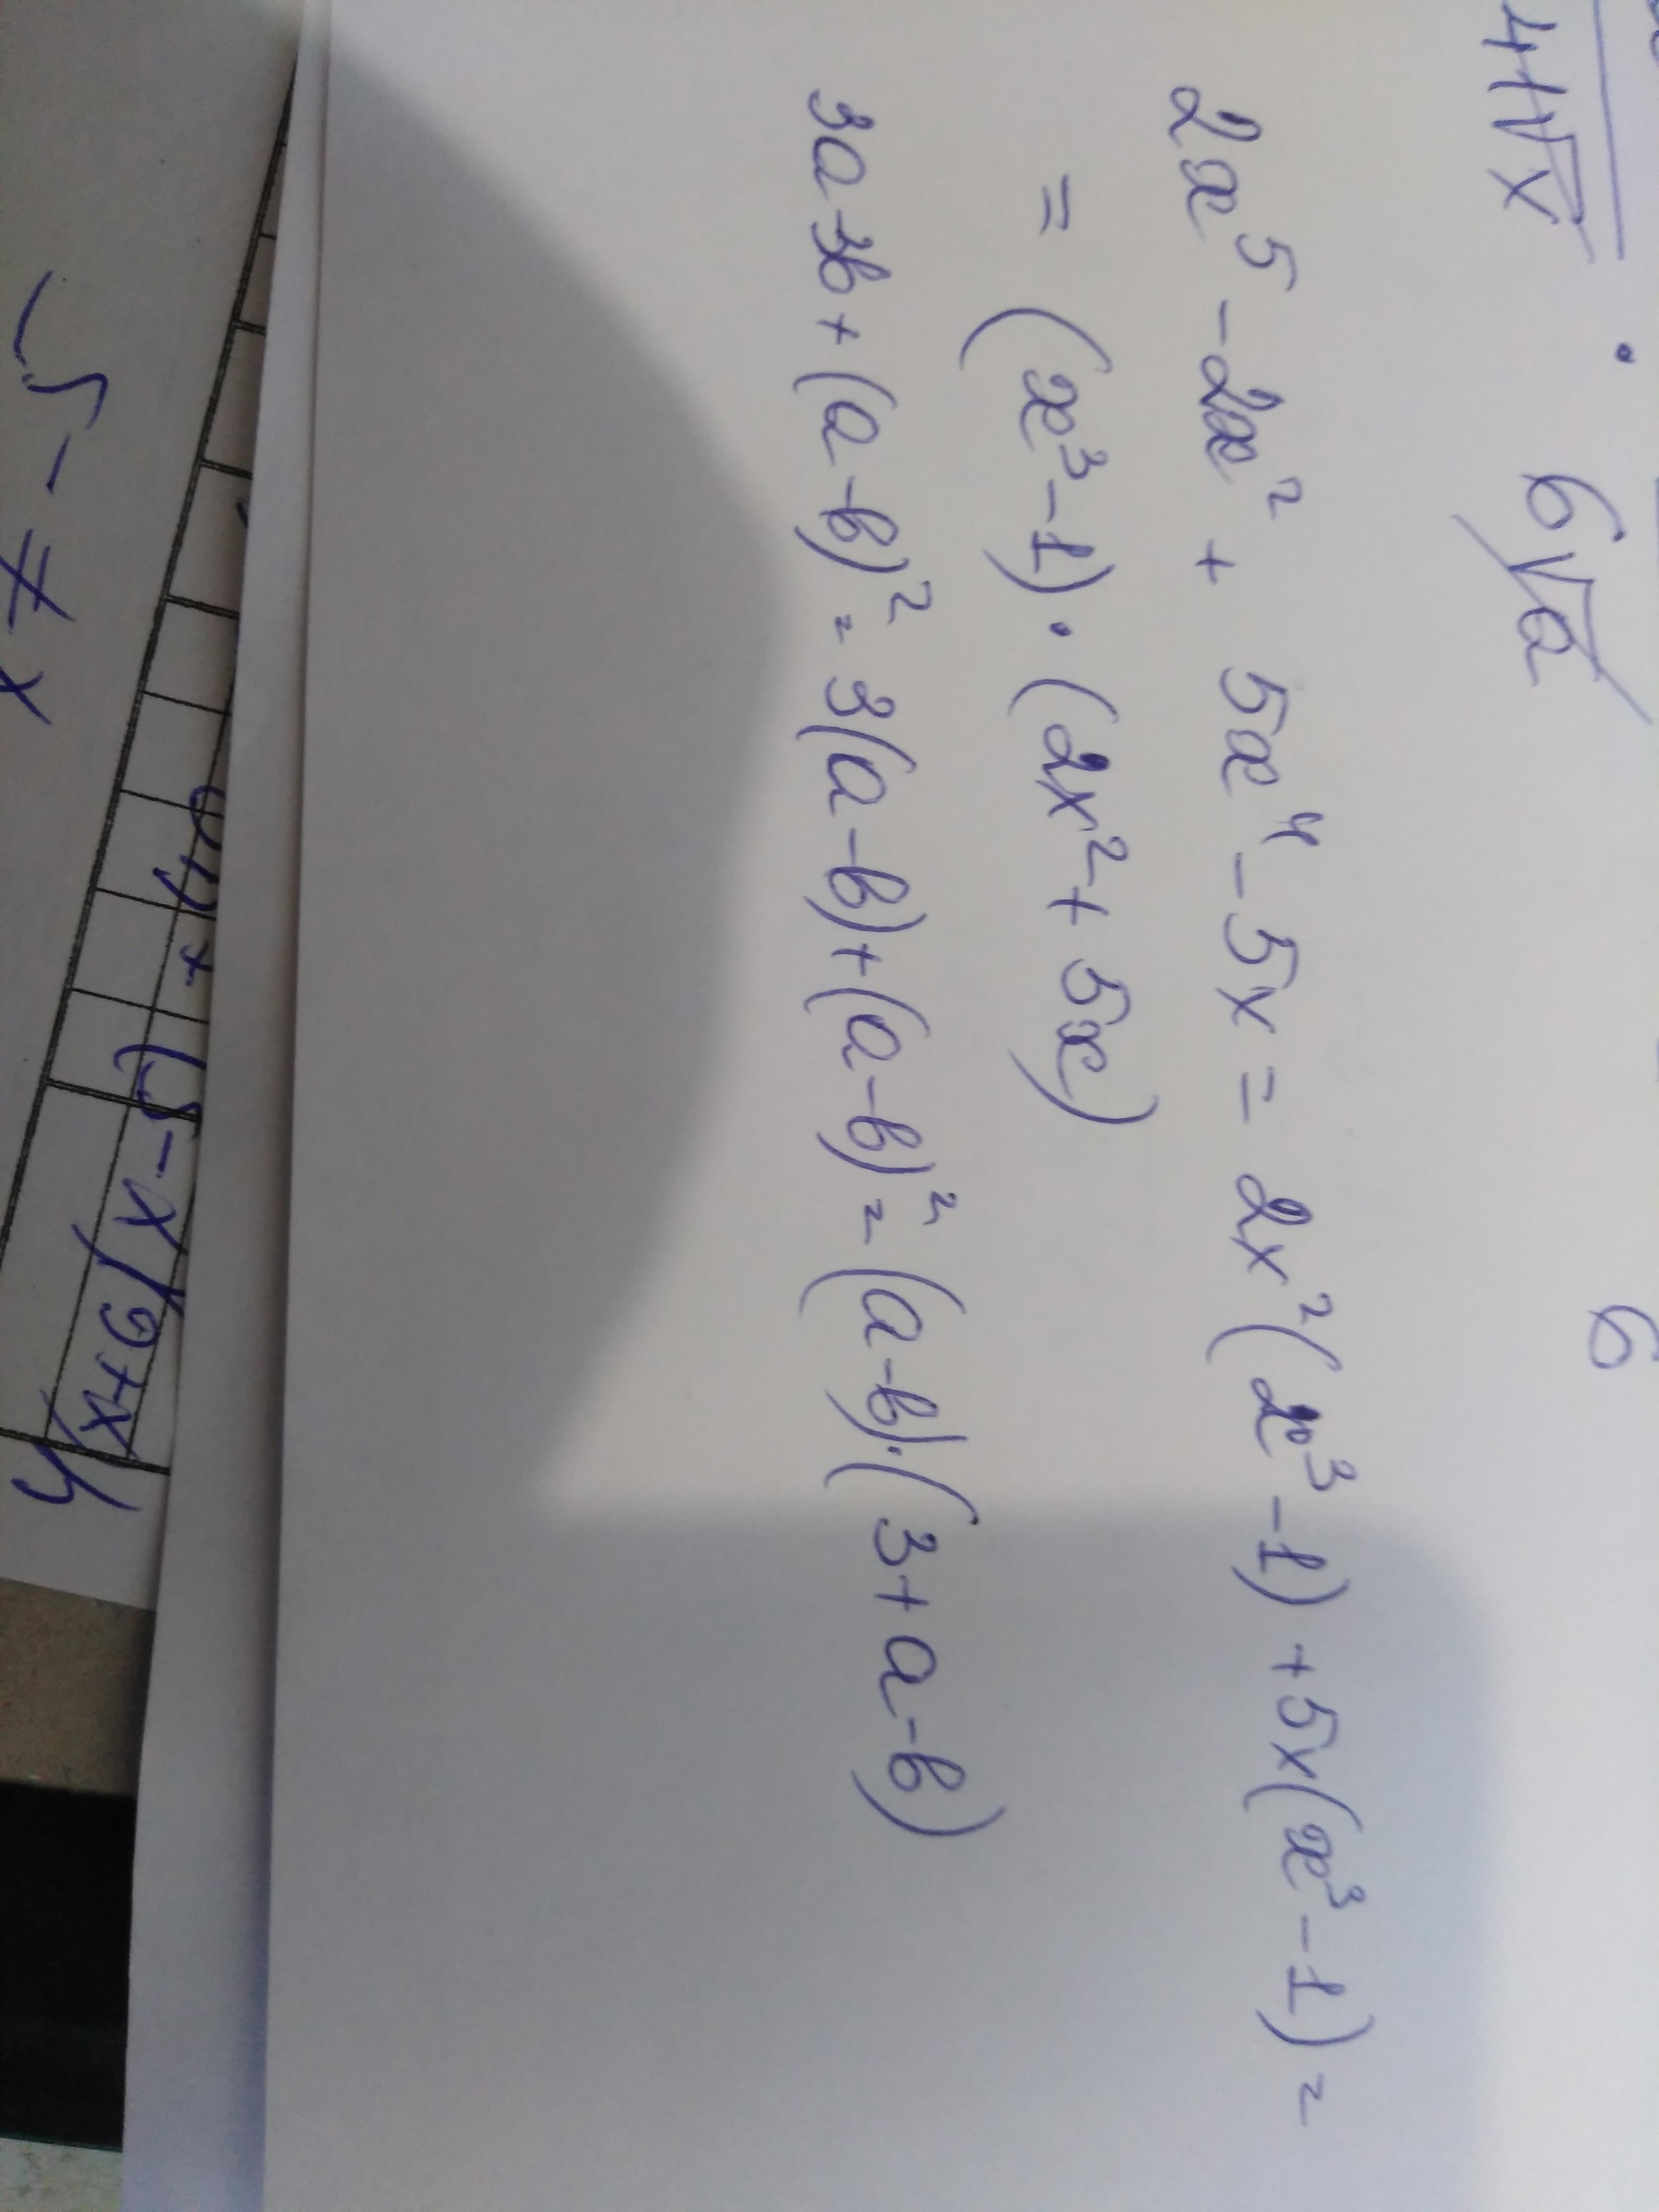 4√x · 6√a
6
2x⁵ - 2x² + 5x⁴ - 5x = 2x²(x³ - 1) + 5x(x³ - 1) =
= (x³ - 1) · (2x² + 5x)
3a - 3b + (a - b)² = 3(a - b) + (a - b)² = (a - b) · (3 + a - b)